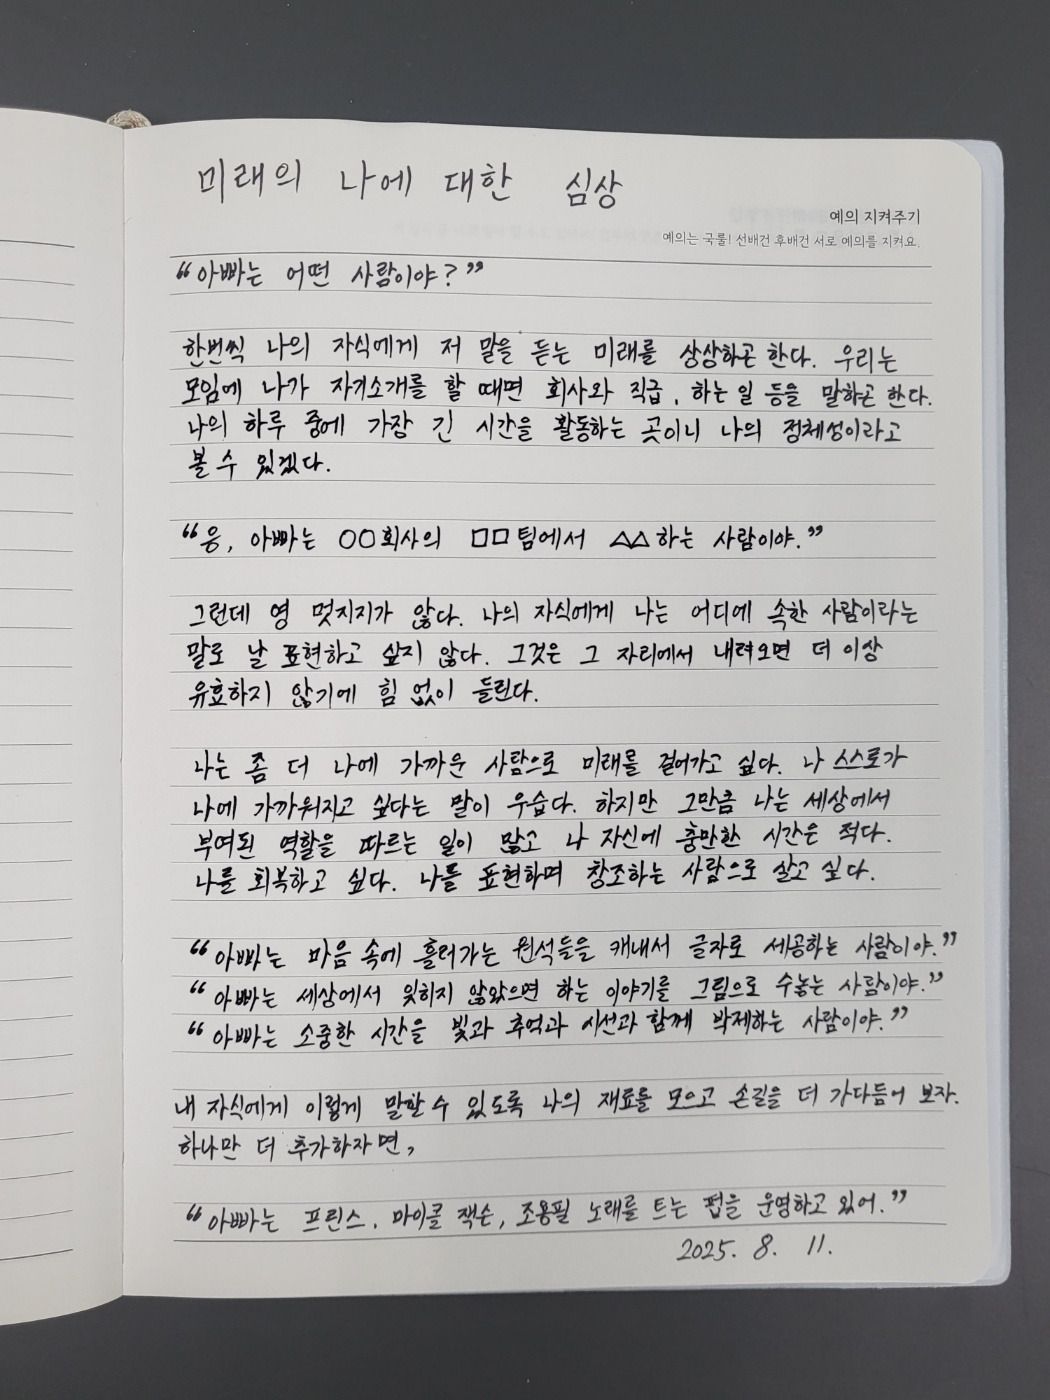 미래의 나에 대한 심상
예의 지켜주기
예의는 국룰! 선배건 후배건 서로 예의를 지켜요.
“아빠는 어떤 사람이야?”
한번씩 나의 자식에게 저 말을 듣는 미래를 상상하곤 한다. 우리는
모임에 나가 자기소개를 할 때면 회사와 직급, 하는 일 등을 말하곤 한다.
나의 하루 중에 가장 긴 시간을 활동하는 곳이니 나의 정체성이라고
볼 수 있겠다.
“응, 아빠는 ○○회사의 □□팀에서 △△하는 사람이야.”
그런데 영 멋지지가 않다. 나의 자식에게 나는 어디에 속한 사람이라는
말로 날 표현하고 싶지 않다. 그것은 그 자리에서 내려오면 더 이상
유효하지 않기에 힘 없이 들린다.
나는 좀 더 나에 가까운 사람으로 미래를 걸어가고 싶다. 나 스스로가
나에 가까워지고 싶다는 말이 우습다. 하지만 그만큼 나는 세상에서
부여된 역할을 따르는 일이 많고 나 자신에 충만한 시간은 적다.
나를 회복하고 싶다. 나를 표현하며 창조하는 사람으로 살고 싶다.
“아빠는 마음 속에 흘러가는 원석들을 캐내서 글자로 세공하는 사람이야.”
“아빠는 세상에서 잊히지 않았으면 하는 이야기를 그림으로 수놓는 사람이야.”
“아빠는 소중한 시간을 빛과 추억과 시선과 함께 박제하는 사람이야.”
내 자식에게 이렇게 말할 수 있도록 나의 재료를 모으고 손길을 더 가다듬어 보자.
하나만 더 추가하자면,
“아빠는 프린스, 마이클 잭슨, 조용필 노래를 트는 펍을 운영하고 있어.”
2025. 8. 11.